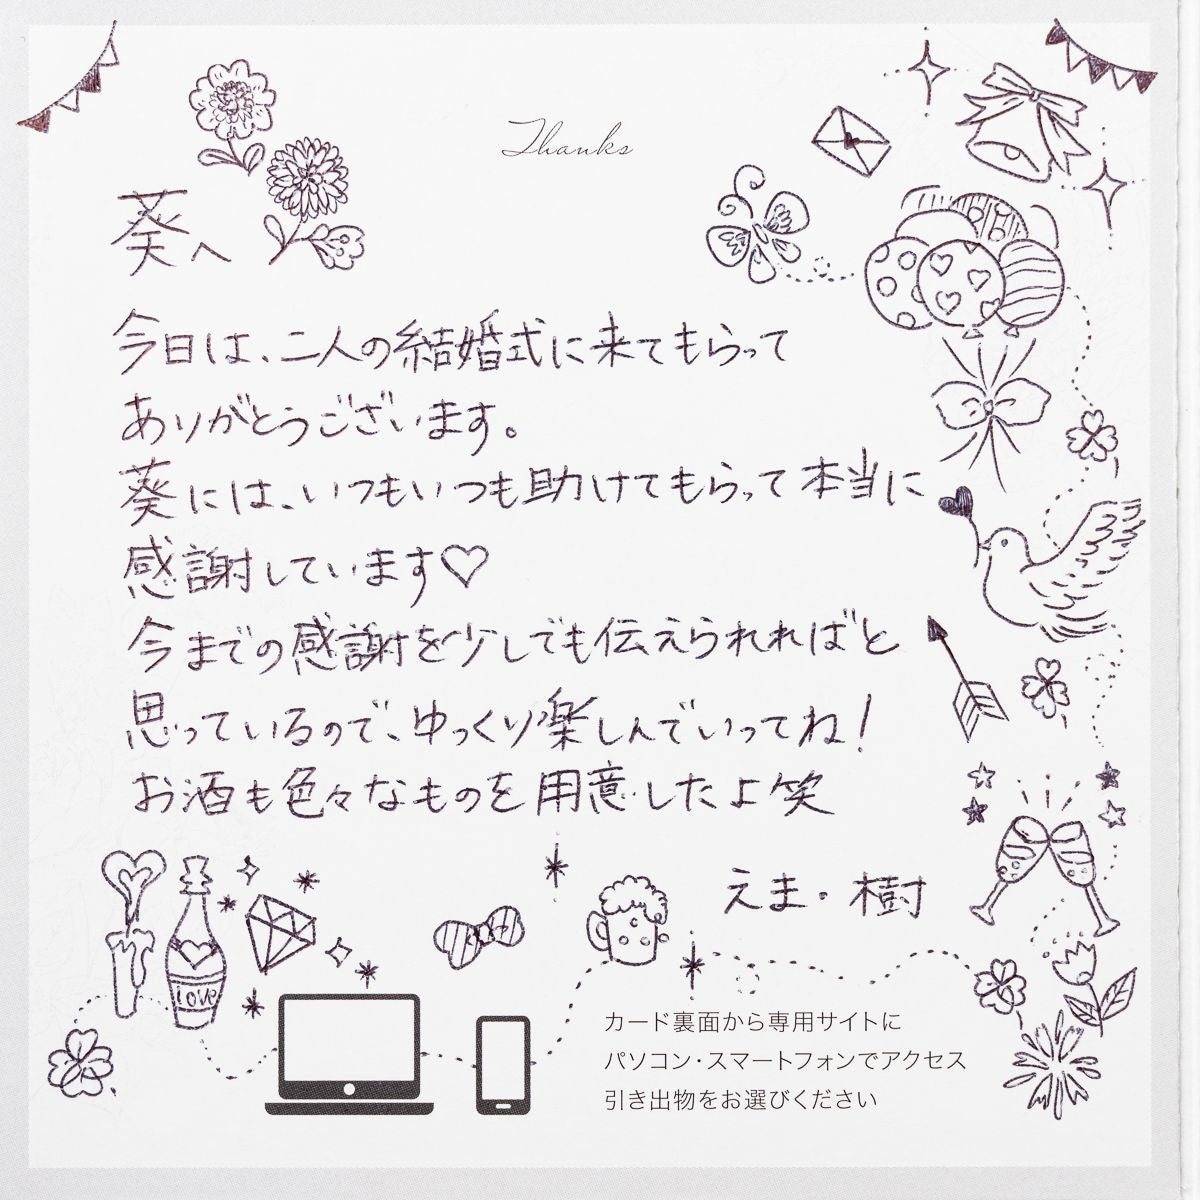 Thanks
葵へ
今日は、二人の結婚式に来てもらって
ありがとうございます。
葵には、いつもいつも助けてもらって本当に
感謝しています♡
今までの感謝を少しでも伝えられればと
思っているので、ゆっくり楽しんでいってね!
お酒も色々なものを用意したよ笑
えま・樹
LOVE
カード裏面から専用サイトに
パソコン・スマートフォンでアクセス
引き出物をお選びください